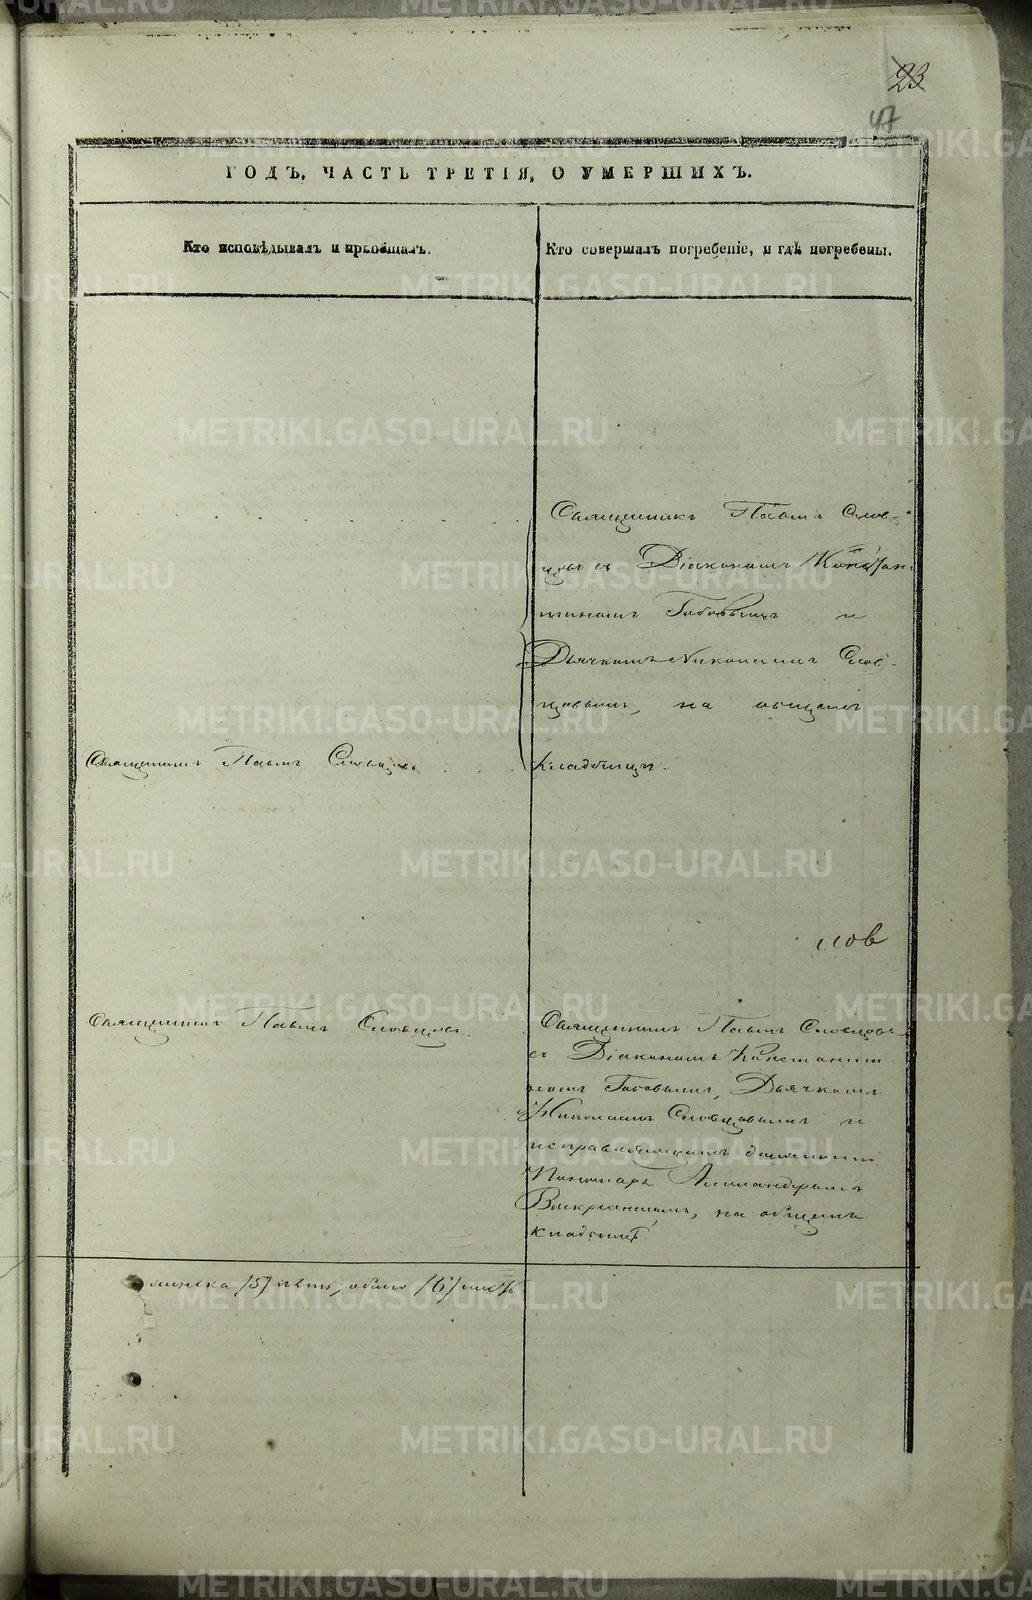 23
47
ГОДЪ, ЧАСТЬ ТРЕТІЯ, О УМЕРШИХЪ.
Кто исповѣдывалъ и пріобщалъ.
Кто совершалъ погребеніе, и гдѣ погребены.
Священникъ Павелъ Словцовъ
Священникъ Павелъ Слов-
цовъ съ Діакономъ Констан
тиномъ и
Дьячкомъ Николаемъ Слов-
цовымъ, на общемъ
кладбищѣ.
Священникъ Павелъ Словцовъ.
Священникъ Павелъ Словцовъ
съ Діакономъ Константи
номъ Дьячкомъ
Николаемъ Словцовымъ и
исправляющимъ должность
Пономаря Александромъ
Воскресенскимъ, на общемъ
кладбищѣ.
женска /5/ пять, обоего /6/ шесть
METRIKI.GASO-URAL.RU